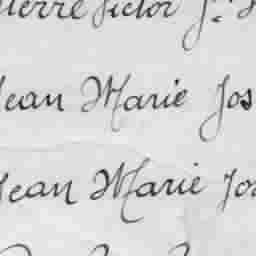 Pierre Victor Jh
Jean Marie Jos
Jean Marie Jos